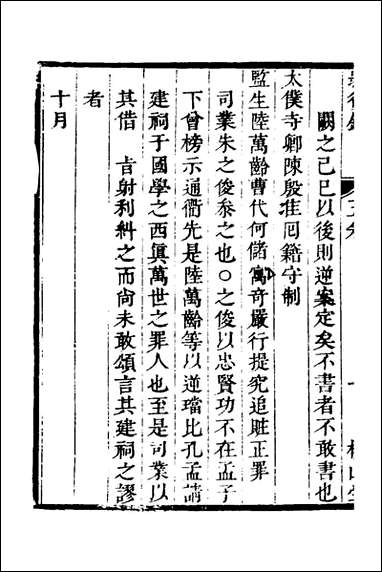 闕之己巳以後則逆案定矣不書者不敢書也
太僕寺卿陳殷准回籍守制
監生陸萬齡曹代何儲富奇嚴行提究追賍正罪
司業朱之俊叅之也○之俊以忠賢功不在孟子
下曾榜示通衢先是陸萬齡等以逆璫比孔孟請
建祠于國學之西眞萬世之罪人也至是司業以
其借 旨射利糾之而尚未敢頌言其建祠之謬
者
十月